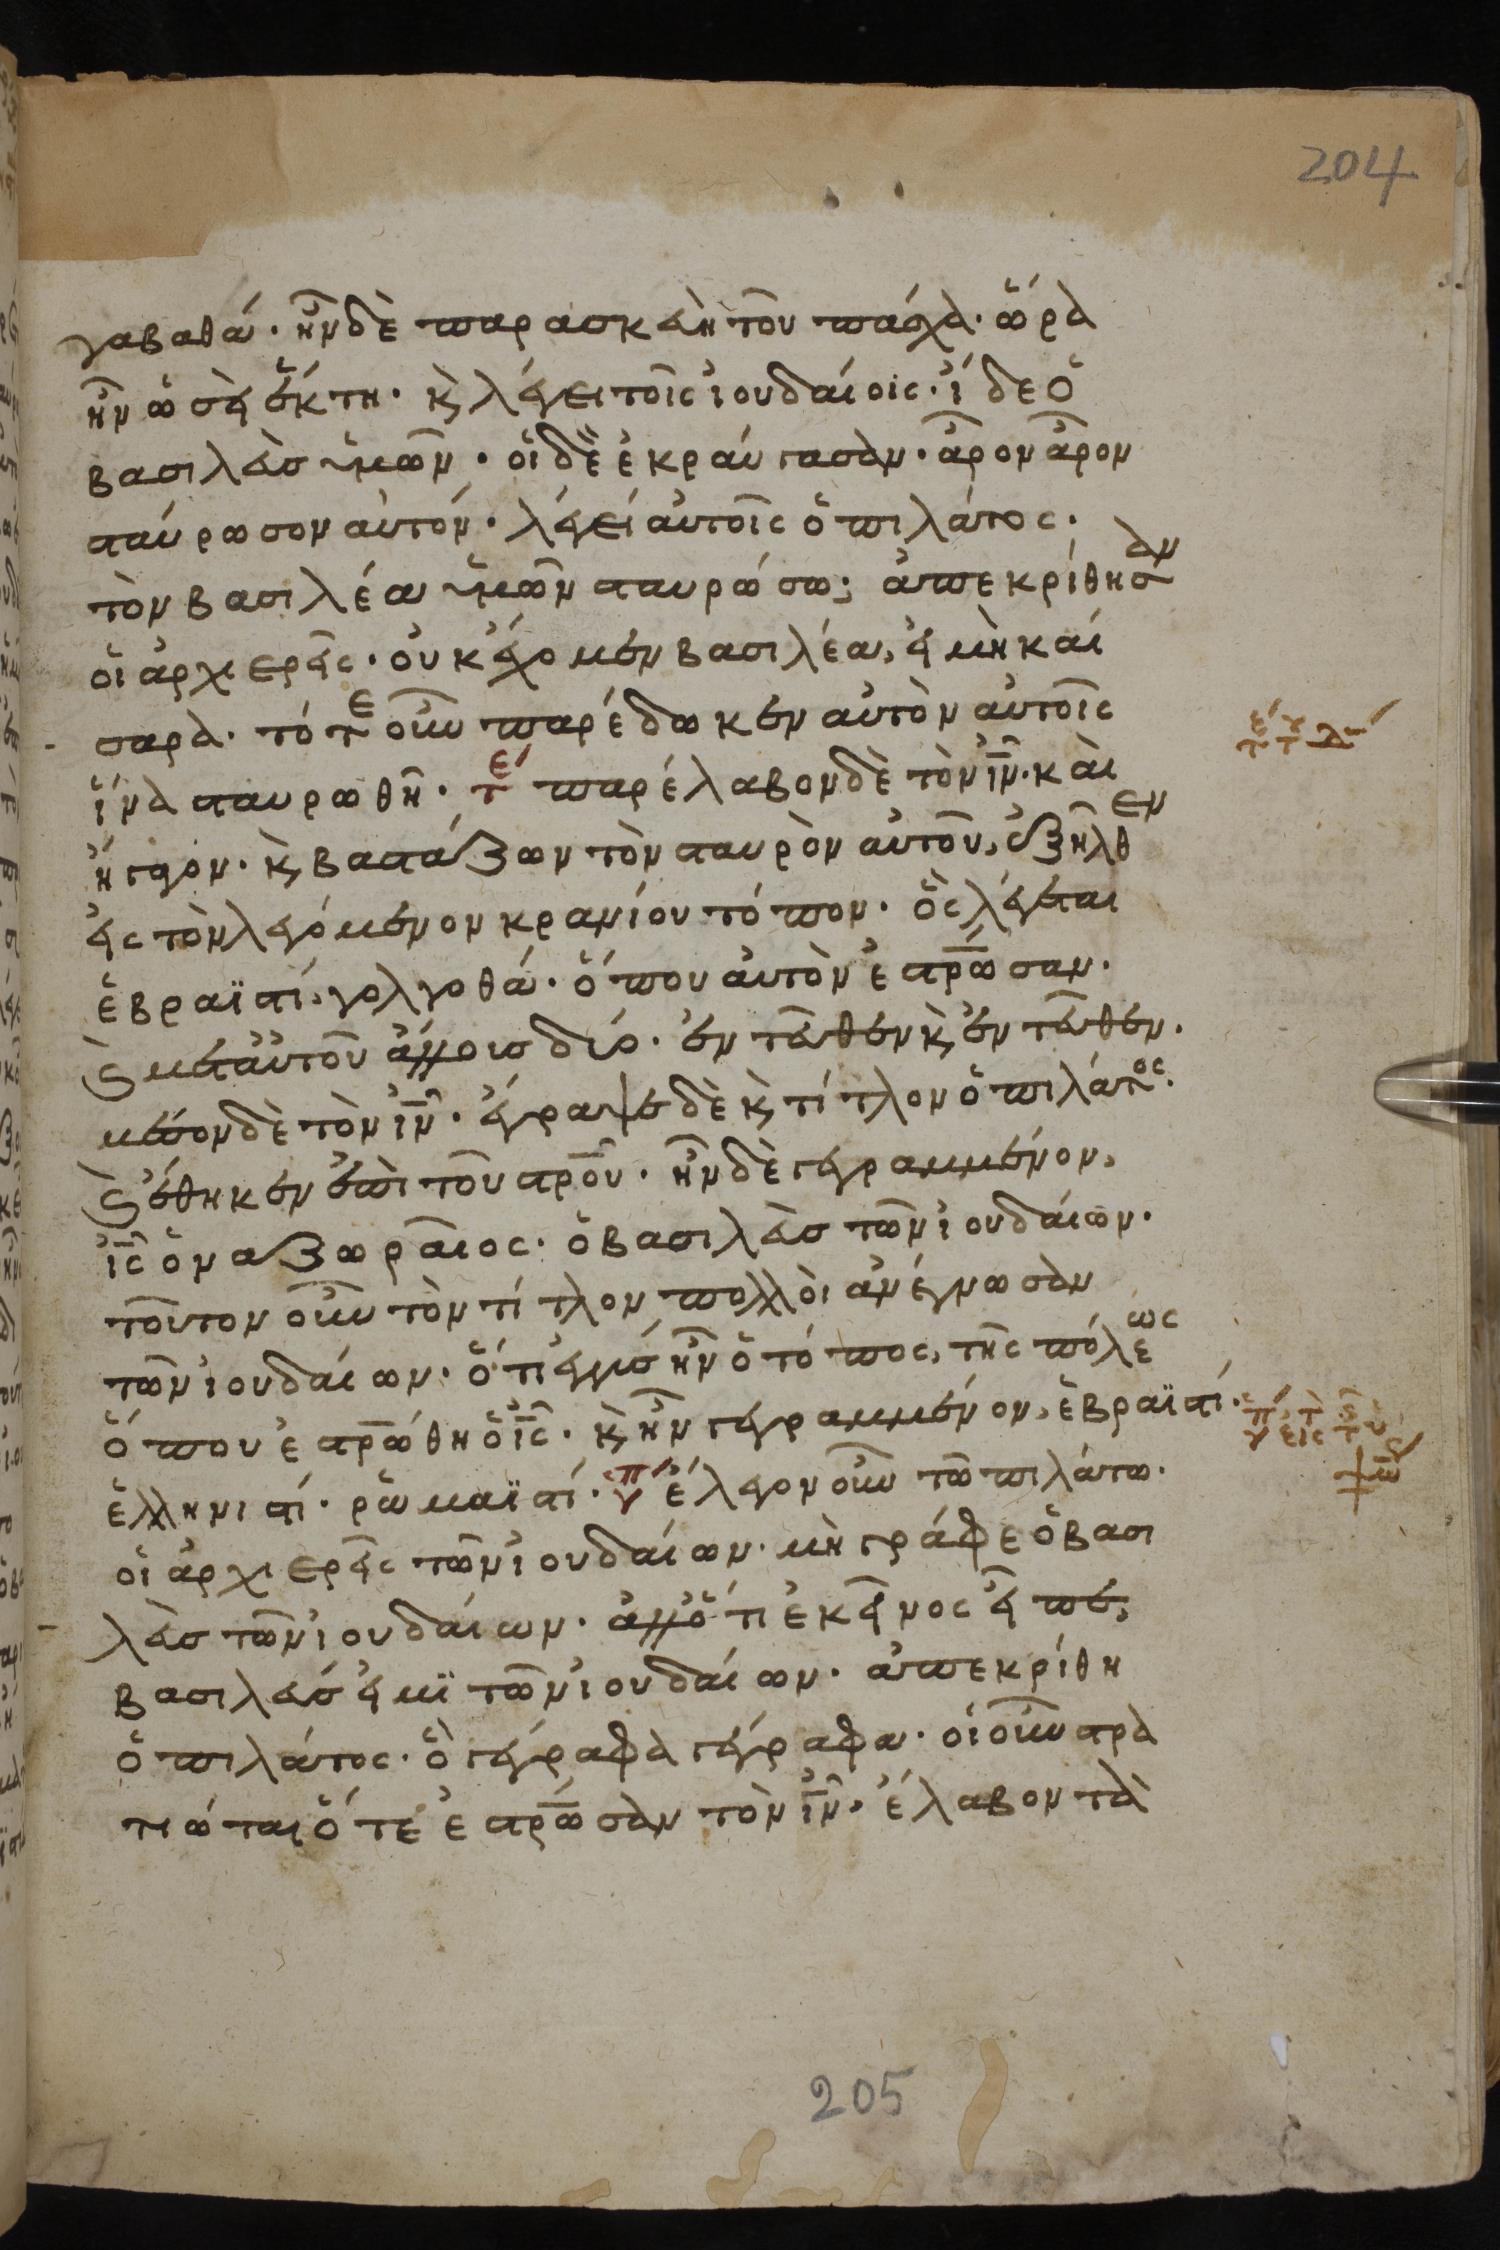 204
γαβαθά· ἦν δὲ παρασκευὴ τοῦ πάσχα· ὥρα
ἦν ὡσεὶ ἕκτη· κὶ λέγει τοῖς ἰουδαίοις· ἴδε ὁ
βασιλεὺσ ὑμῶν· οἱ δὲ ἐκραύγασαν· ἆρον ἆρον
σταύρωσον αὐτόν· λέγει αὐτοῖς ὁ πιλάτος·
τὸν βασιλέα ὑμῶν σταυρώσω; ἀπεκρίθησαν
οἱ ἀρχιερεῖς· οὐκ ἔχομεν βασιλέα, εἰ μὴ καί
σαρα· τότε οὖν παρέδωκεν αὐτὸν αὐτοῖς
ἵνα σταυρωθῆ· τε´ παρέλαβον δὲ τὸν ἰν· καὶ
ἤγαγον· κὶ βαστάζων τὸν σταυρὸν αὐτοῦ, ἐξῆλθεν
εἰς τὸν λεγόμενον κρανίου τόπον· ὃς λέγεται
ἑβραϊστί, γολγοθά· ὅπου αὐτὸν ἐστρωσαν·
κὶ μετ αὐτοῦ ἄλλουσ δύο· ἐντεῦθεν κὶ ἐντεῦθεν·
μέσον δὲ τὸν ἰν· ἔγραψε δὲ κὶ τίτλον ὁ πιλάτος·
κὶ ἔθηκεν ἐπὶ τοῦ στροῦ· ἦν δὲ γεγραμμένον,
ἰς ὁ ναζωραῖος· ὁ βασιλεὺσ τῶν ἰουδαίων·
τοῦτον οὖν τὸν τίτλον πολλοὶ ἀνέγνωσαν
τῶν ἰουδαίων· ὅτι ἐγγὺσ ἦν ὁ τόπος, τῆς πόλεως
ὅπου ἐστρώθη ὁ ἰς· κὶ ἦν γεγραμμένον, ἑβραϊστί·
ἑλληνιστί· ῥωμαϊστί· ἔλεγον οὖν τῶ πιλάτω·
οἱ ἀρχιερεῖς τῶν ἰουδαίων· μὴ γράφε ὁ βασι
λεὺσ τῶν ἰουδαίων· ἀλλ ὅτι ἐκεῖνος εἶπε,
βασιλεύσ εἰμϊ τῶν ἰουδαίων· ἀπεκρίθη
ὁ πιλάτος· ὃ γέγραφα γέγραφα· οἱ οὖν στρα
τιώται ὅτε ἐστρωσαν τὸν ἰν· ἔλαβον τὰ
205